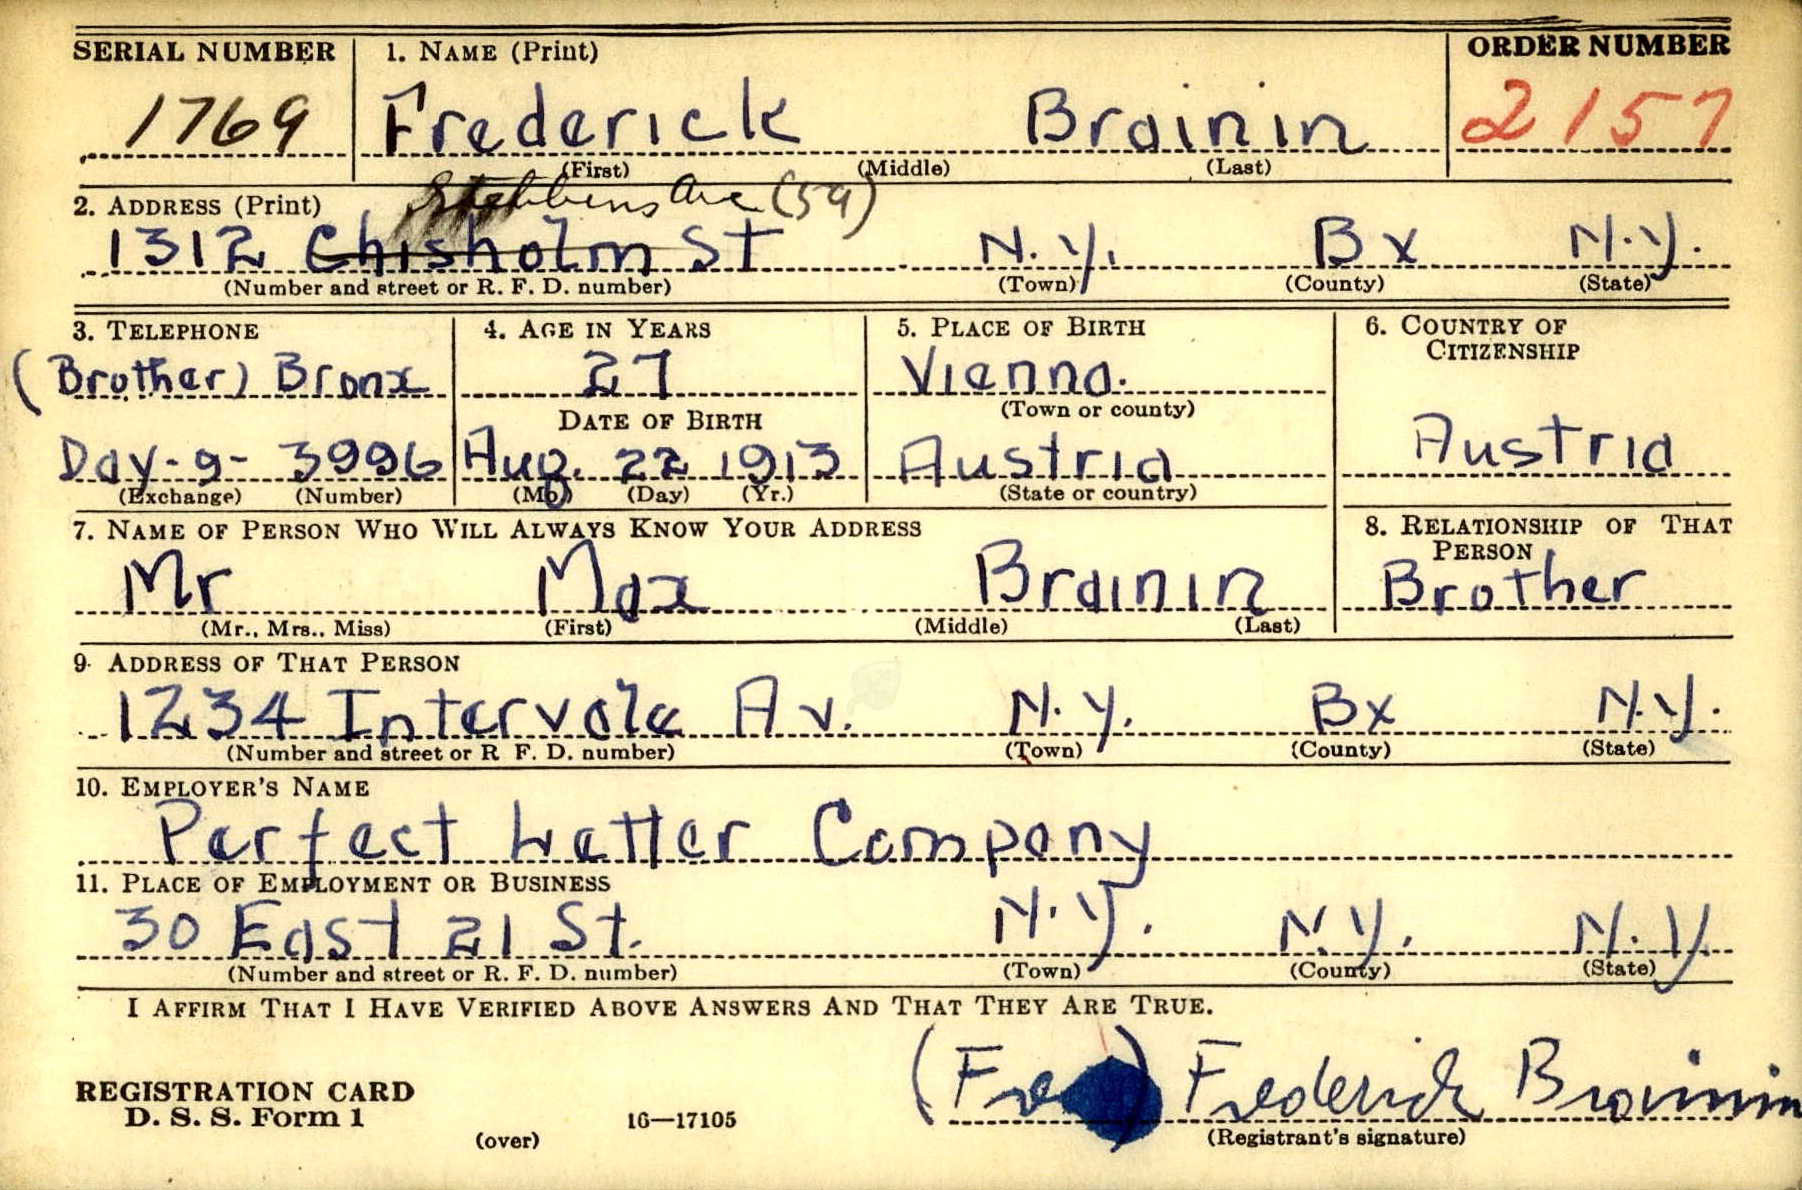 SERIAL NUMBER 1. NAME (Print) ORDER NUMBER
1769 Frederick Brainin 2157
(First) (Middle) (Last)
Stebbins Ave (59)
2. ADDRESS (Print)
1312 Chisholm St N.Y. Bx N.Y.
(Number and street or R. F. D. number) (Town) (County) (State)
3. TELEPHONE 4. AGE IN YEARS 5. PLACE OF BIRTH 6. COUNTRY OF CITIZENSHIP
(Brother) Bronx 27 Vienna.
DATE OF BIRTH (Town or county)
Day-9- 3996 Aug. 22 1913 Austria Austria
(Exchange) (Number) (Mo.) (Day) (Yr.) (State or country)
7. NAME OF PERSON WHO WILL ALWAYS KNOW YOUR ADDRESS 8. RELATIONSHIP OF THAT PERSON
Mr Max Brainin Brother
(Mr., Mrs., Miss) (First) (Middle) (Last)
9. ADDRESS OF THAT PERSON
1234 Intervale Av. N.Y. Bx N.Y.
(Number and street or R. F. D. number) (Town) (County) (State)
10. EMPLOYER'S NAME
Perfect Letter Company
11. PLACE OF EMPLOYMENT OR BUSINESS
30 East 21 St. N.Y. N.Y. N.Y.
(Number and street or R. F. D. number) (Town) (County) (State)
I AFFIRM THAT I HAVE VERIFIED ABOVE ANSWERS AND THAT THEY ARE TRUE.
(Fre ) Frederick Brainin
REGISTRATION CARD
D. S. S. Form 1 16—17105 (Registrant's signature)
(over)